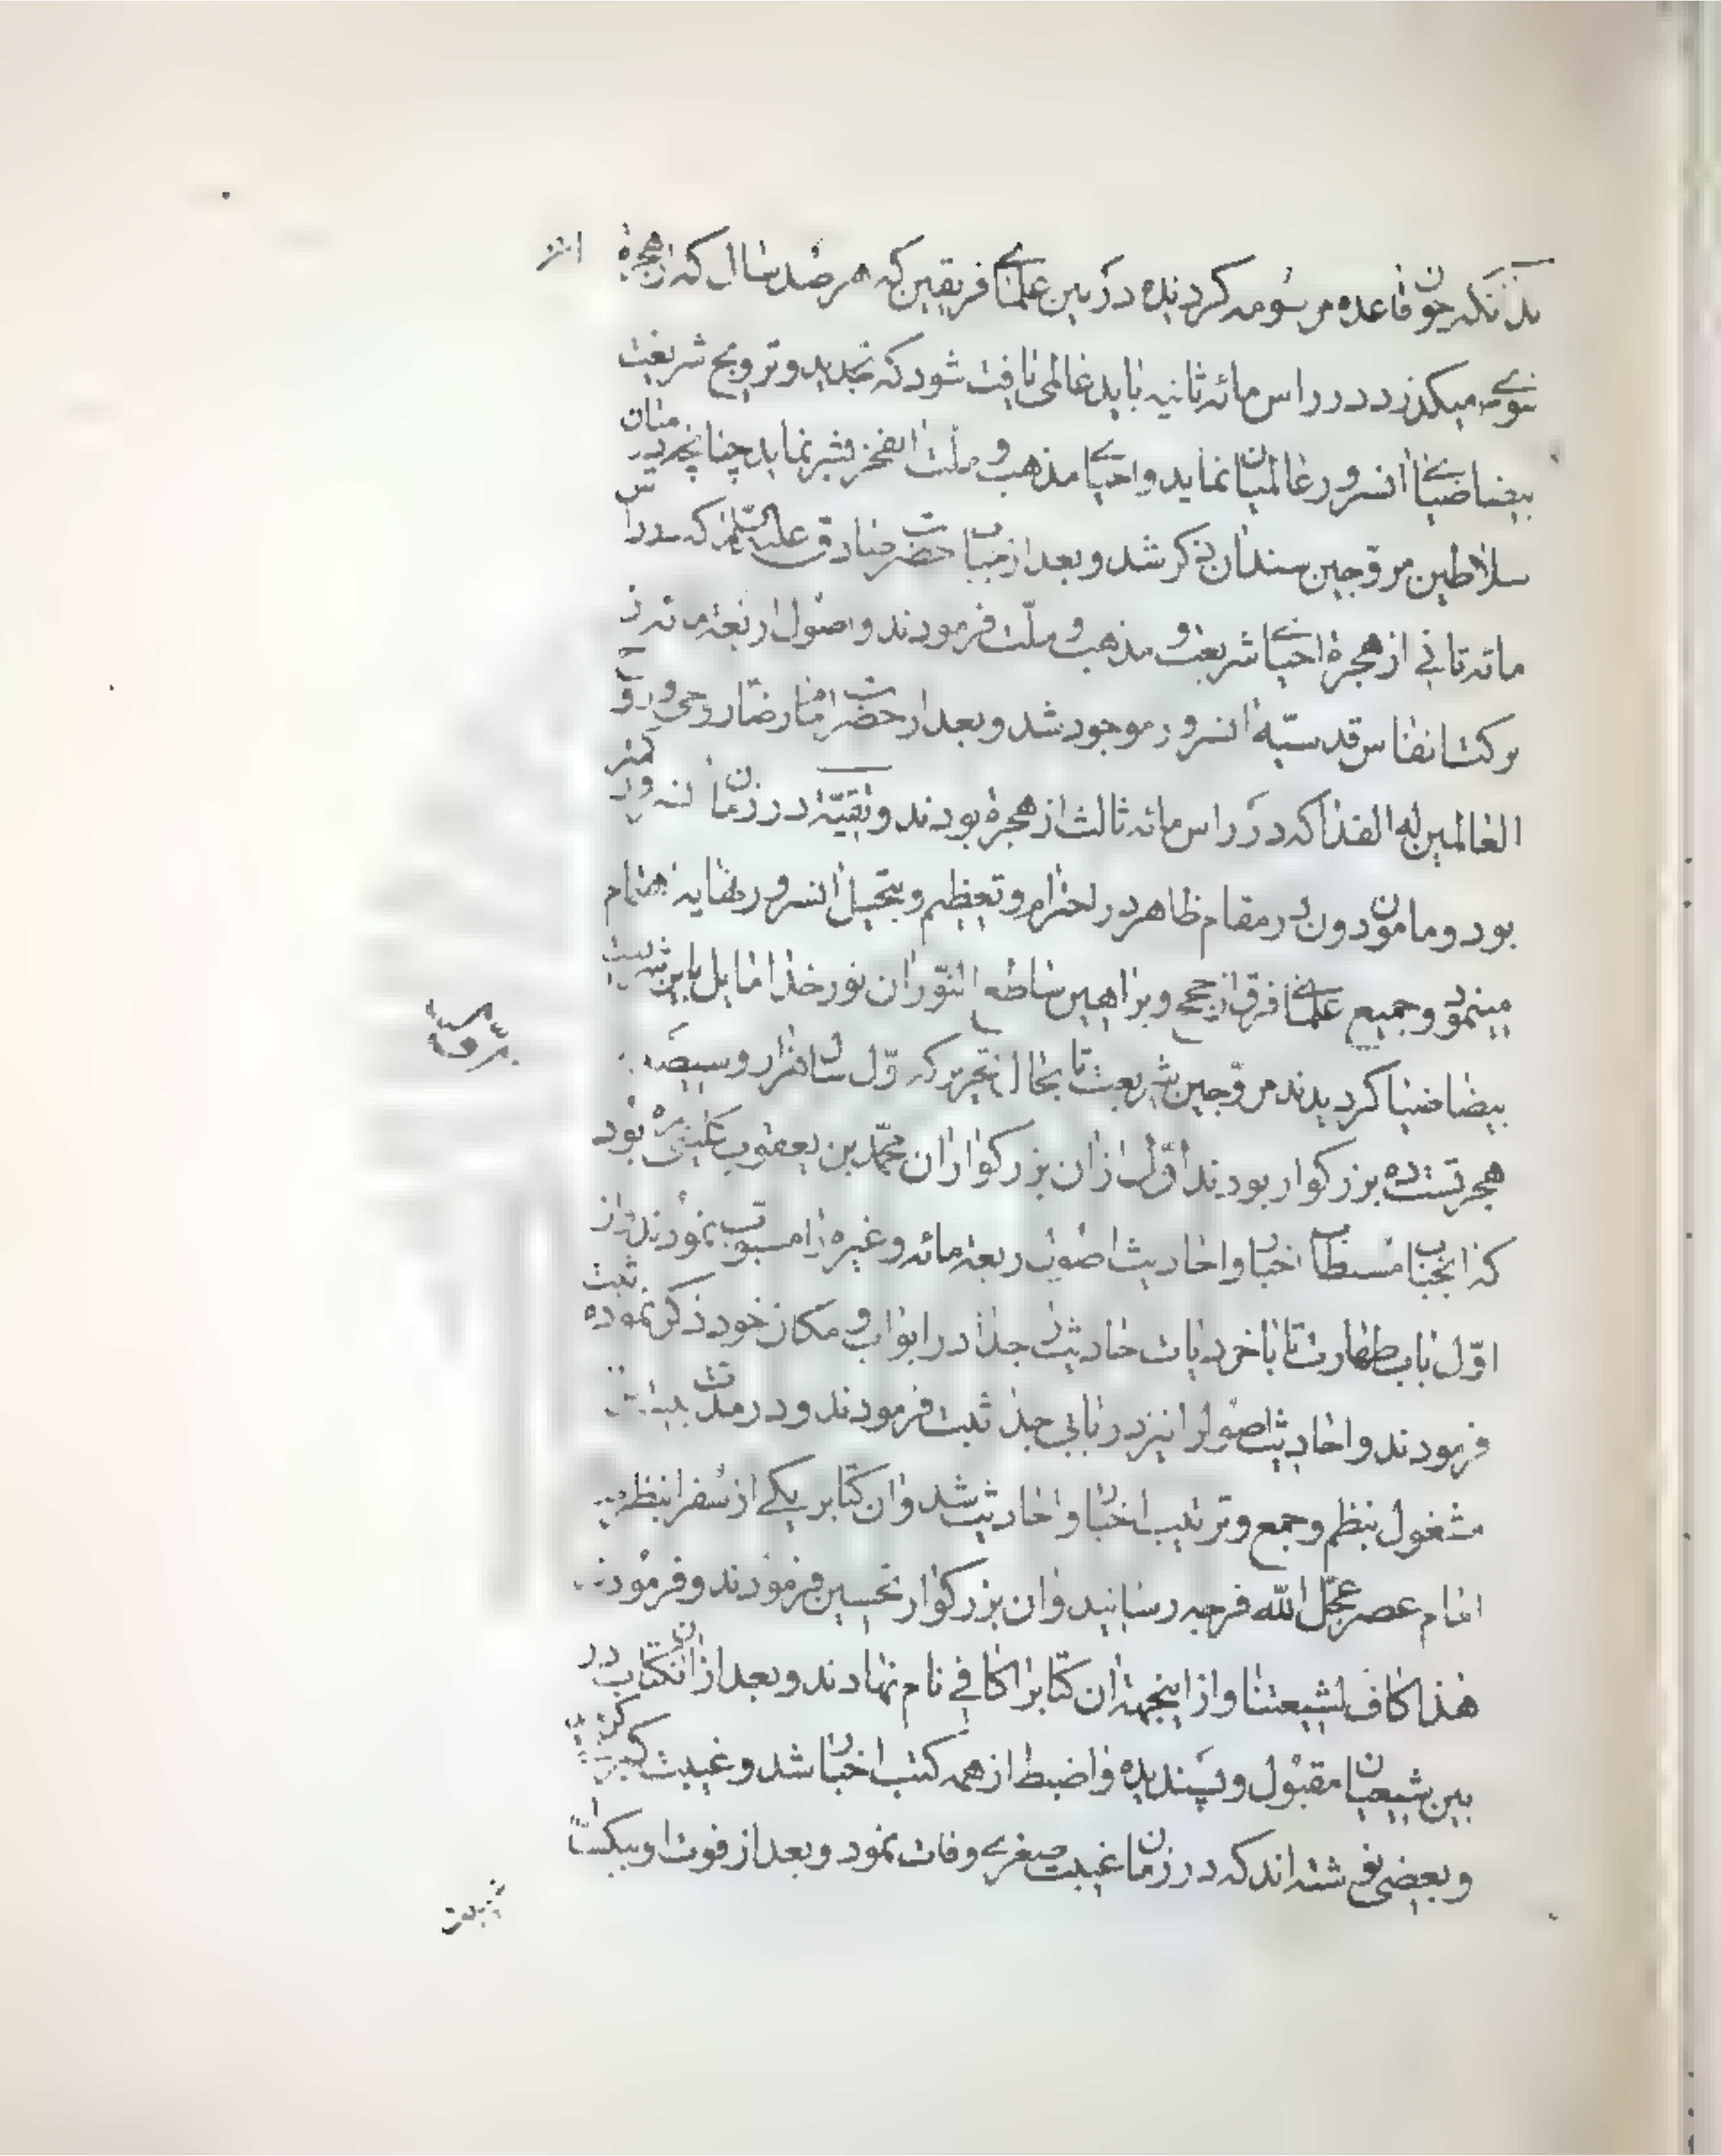 بدانکه چون قاعده مرسومه کردیده در بین علمای فریقین که هر صد سال که از هجرة
نبوی میکذرد در راس مائه ثانیه باید عالمی یافت شود که تجدید و ترویج شریعت
بیضا ضیای انسرور عالمیان نماید و احیای مذهب و ملت نماید چنانچه در میان
سلاطین مروجین سندان ذکر شد و بعد از جناب حضرت صادق علیه السلم که در راس
مائه ثانی از هجرة احیای شریعت و مذهب و ملّت فرمودند و اصول اربعة مائه از
برکت انفاس قدسیّه انسرور موجود شد و بعد از حضرت امام رضا روحی و روح
العالمین له الفدا که در راس مائه ثالث از هجرة بودند و تقیّه در زمان کمتر
بود و مامون دون در مقام ظاهر در احترام و تعظیم و تبجیل انسرور نهایة اهتمام
مینمود و جمیع علمای فرق از حجج و براهین ساطع النّور ان نور خدا مایل باین شریعت
بیضا ضیا کردیدند مروّجین شریعت تا بحال تحریر که اوّل سال هزار و سیصد
هجریست ده بزرکوار بودند اوّل ازان بزرکواران محمّد بن یعقوب کلینی بود
که انجناب اخبار و احادیث اصول اربعة مائه و غیره را مبوب نمودند از
اوّل باب طهارت تا باخر دیات احادیث جدا در ابواب و مکان خود ذکر نموده ثبت
فرمودند و احادیث اصول را نیز در بابی جدا ثبت فرمودند و در مدت بیست
مشغول بنظم و جمع و ترتیب اخبار و احادیث شد و ان کتابرا یکی از سفرا بنظر
امام عصر عجّل الله فرجه رسانید و ان بزرکوار تحسین فرمودند و فرمودند
هذا کاف لشیعتنا و از اینجهة ان کتابرا کافی نام نهادند و بعد از ان انکتاب در
بین شیعیان مقبول و پسندیده و اضبط از همه کتب اخبار شد و غیبت کبری
و بعضی نوشته اند که در زمان غیبت صغری وفات نمود و بعد از فوت او